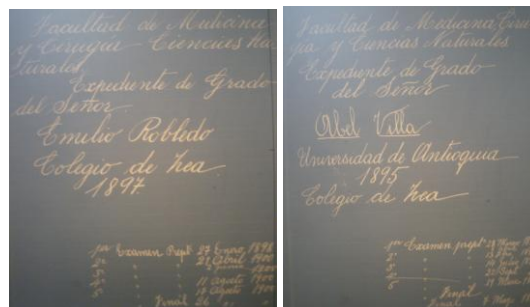 Facultad de Medicina
y Cirugía - Ciencias Na-
turales
Expediente de Grado
del Señor
Emilio Robledo
Colegio de Zea
1897
1er Examen Prepto 27 Enero, 1898
2o " " 21 Abril 1900
3o " "
4o " " 11 Agosto 1900
5o " " Agosto 1900
Final 26
Facultad de Medicina Ciru-
gía y Ciencias Naturales
Expediente de Grado
del Señor
Abel Villa
Universidad de Antioquia
1895
Colegio de Zea
1er Examen prepto
2o " "
3o " "
4o " "
5o " "
Final